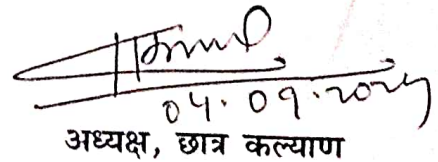 04.09.2024
अध्यक्ष, छात्र कल्याण